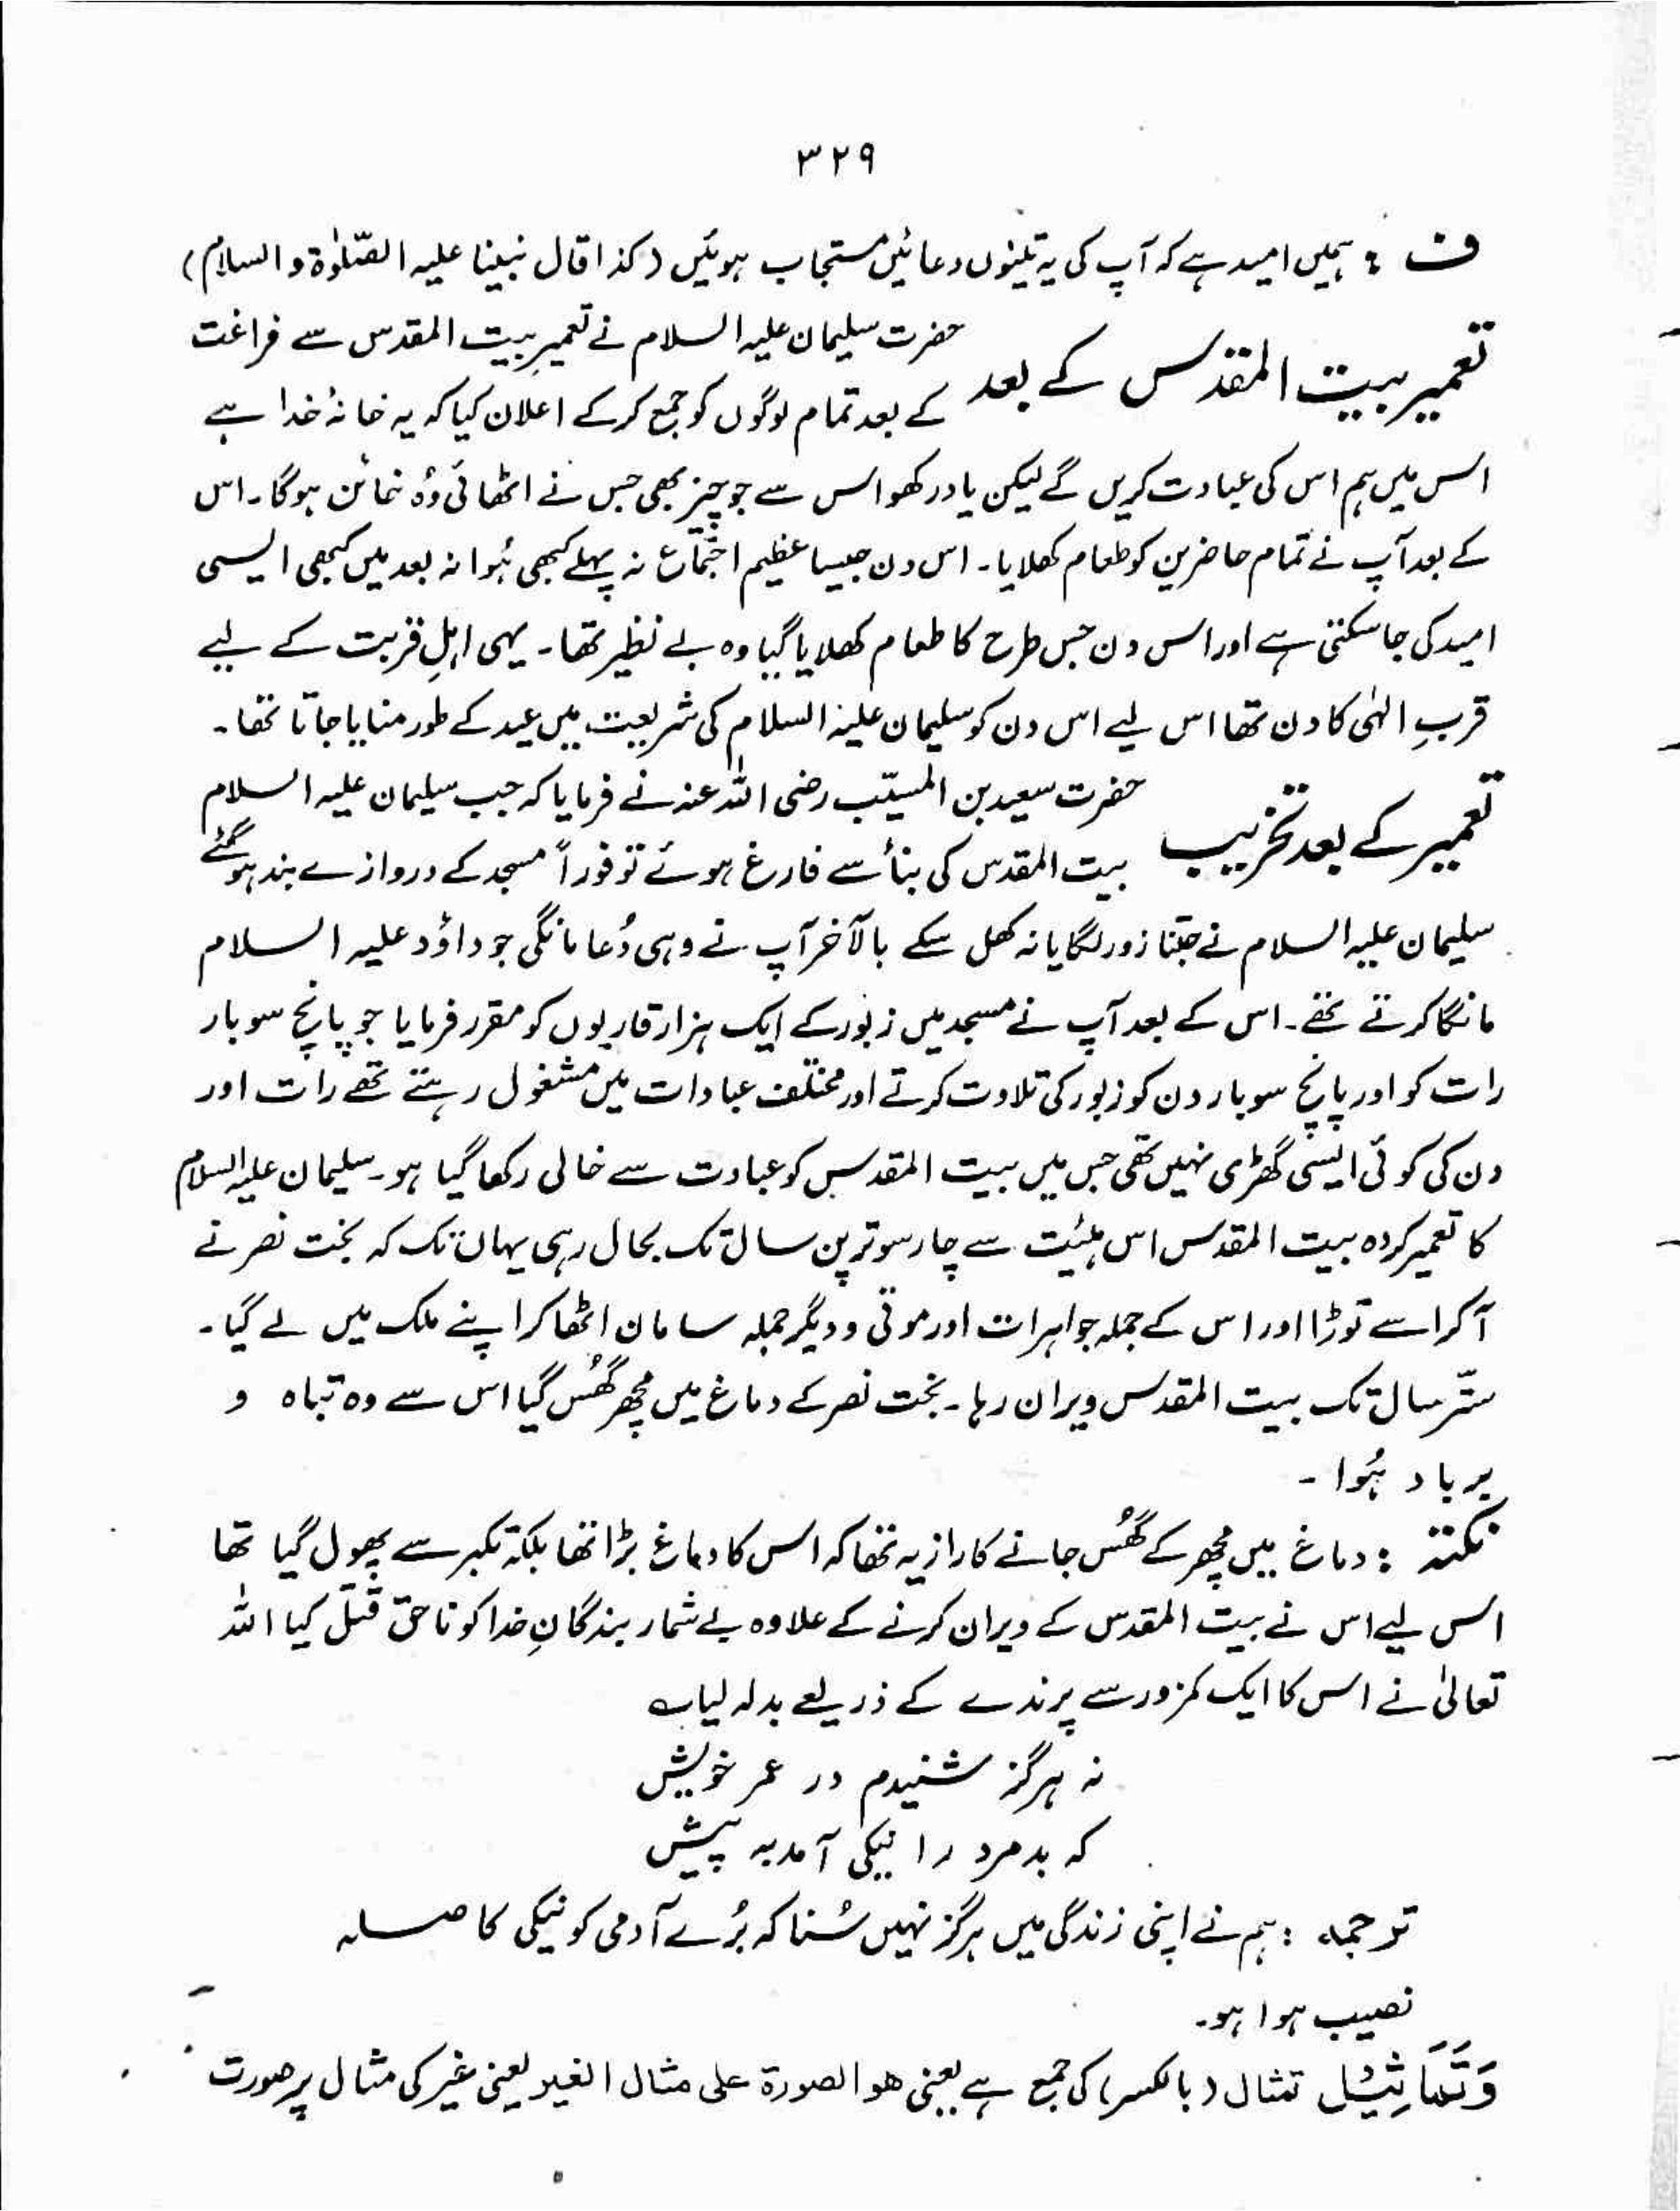 ۳۲۹
ف : ہمیں امید ہے کہ آپ کی یہ تینوں دعائیں مستجاب ہوئیں (کذا قال نبینا علیہ الصّلوٰۃ و السلام)
تعمیر بیت المقدس کے بعد
حضرت سلیمان علیہ السلام نے تعمیرِ بیت المقدس سے فراغت
کے بعد تمام لوگوں کو جمع کر کے اعلان کیا کہ یہ خانۂ خدا ہے
اس میں ہم اس کی عبادت کریں گے لیکن یاد رکھو اس سے جو چیز بھی جس نے اٹھائی وُہ خائن ہوگا۔ اس
کے بعد آپ نے تمام حاضرین کو طعام کھلایا۔ اس دن جیسا عظیم اجتماع نہ پہلے کبھی ہُوا نہ بعد میں کبھی ایسی
امید کی جا سکتی ہے اور اس دن جس طرح کا طعام کھلایا گیا وہ بے نظیر تھا۔ یہی اہلِ قربت کے لیے
قربِ الہٰی کا دن تھا اس لیے اس دن کو سلیمان علیہ السلام کی شریعت میں عید کے طور منایا جاتا تھا۔
تعمیر کے بعد تخریب
حضرت سعید بن المسیّب رضی اللہ عنہ نے فرمایا کہ جب سلیمان علیہ السلام
بیت المقدس کی بنأ سے فارغ ہوئے تو فوراً مسجد کے دروازے بند ہوگئے
سلیمان علیہ السلام نے جتنا زور لگایا نہ کھل سکے بالآخر آپ نے وہی دُعا مانگی جو داؤد علیہ السلام
مانگا کرتے تھے۔ اس کے بعد آپ نے مسجد میں زبور کے ایک ہزار قاریوں کو مقرر فرمایا جو پانچ سو بار
رات کو اور پانچ سو بار دن کو زبور کی تلاوت کرتے اور مختلف عبادات میں مشغول رہتے تھے رات اور
دن کی کوئی ایسی گھڑی نہیں تھی جس میں بیت المقدس کو عبادت سے خالی رکھا گیا ہو۔ سلیمان علیہ السلام
کا تعمیر کردہ بیت المقدس اس ہئیت سے چار سو ترپن سال تک بحال رہی یہاں تک کہ بخت نصر نے
آ کر اسے توڑا اور اس کے جملہ جواہرات اور موتی و دیگر جملہ سامان اٹھا کر اپنے ملک میں لے گیا۔
ستّر سال تک بیت المقدس ویران رہا۔ بخت نصر کے دماغ میں مچھر گھُس گیا اس سے وہ تباہ و
برباد ہُوا -
نکتہ : دماغ میں مچھر کے گھُس جانے کا راز یہ تھا کہ اس کا دماغ بڑا تھا بلکہ تکبر سے پھول گیا تھا
اس لیے اس نے بیت المقدس کے ویران کرنے کے علاوہ بے شمار بندگانِ خدا کو ناحق قتل کیا اللہ
تعالیٰ نے اس کا ایک کمزور سے پرندے کے ذریعے بدلہ لیا؎
نہ ہرگز شنیدم در عمر خویش
کہ بد مرد را نیکی آمد بہ پیش
ترجمہ : ہم نے اپنی زندگی میں ہرگز نہیں سُنا کہ بُرے آدمی کو نیکی کا صلہ
نصیب ہوا ہو۔
وَتَمَاثِیْلَ تمثال (بالکسر) کی جمع ہے یعنی ھو الصورۃ علی مثال الغیر یعنی غیر کی مثال پر صورت